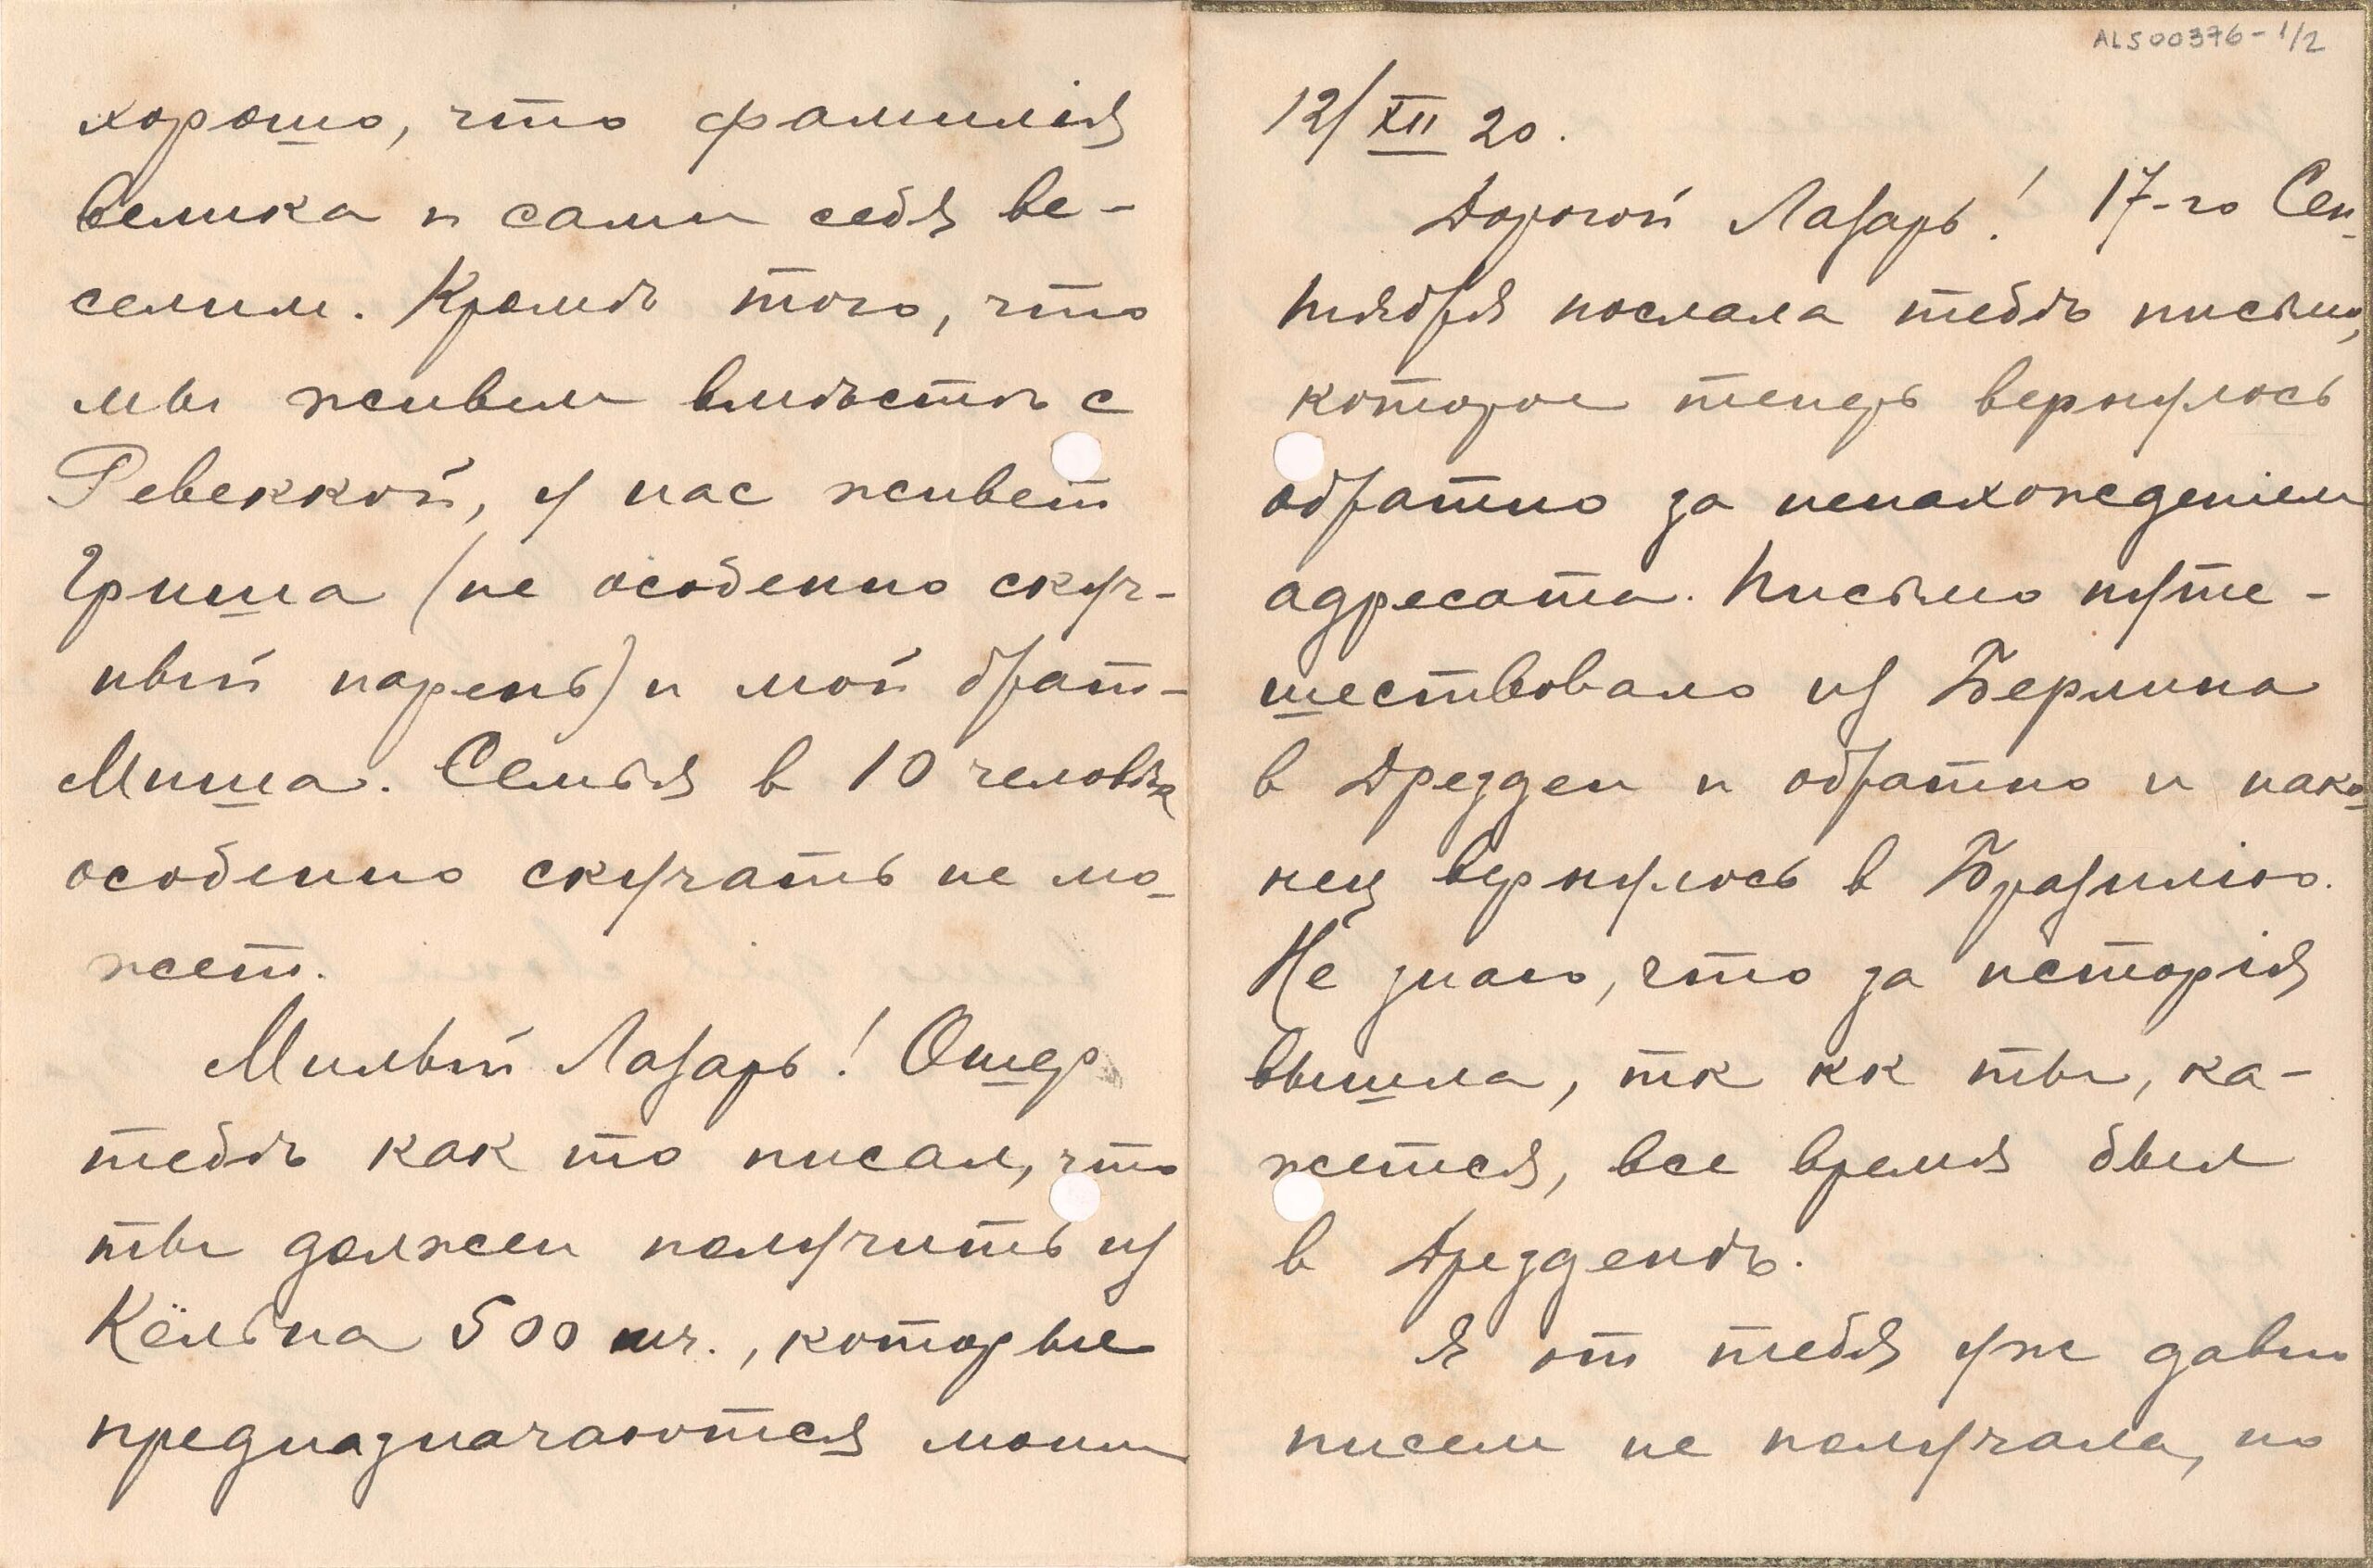 ALS00376-1/2
12/XII 20.
Дорогой Лазарь! 17-го Сен-
тября послала тебѣ письмо,
которое теперь вернулось
обратно за ненахожденіем
адресата. Письмо путе-
шествовало из Берлина
в Дрезден и обратно и нако-
нец вернулось в Бразилію.
Не знаю, что за исторія
вышла, тк кк ты, ка-
жется, все время был
в Дрезденѣ.
Я от тебя уж давно
писем не получала, но
хорошо, что фамилія
велика и сами себя ве-
селим. Кромѣ того, что
мы живем вмѣстѣ с
Ревеккой, у нас живет
Гриша (не особенно скуч-
ный парень) и мой брат-
Миша. Семья в 10 человѣк
особенно скучать не мо-
жет.
Милый Лазарь! Ошер
тебѣ как то писал, что
ты должен получить из
Кёльна 500 мч., которые
предназначаются моим